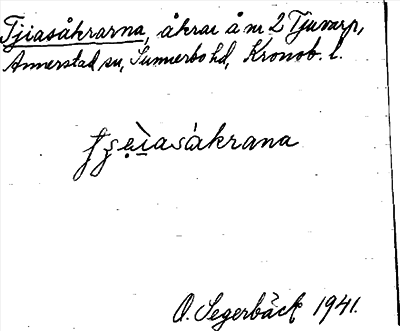 Tjiasåkrarna, åkrar å nr 2 Tjuvarp,
Annerstad sn, Sunnerbo hd, Kronob. l.
åkrana
O. Segerbäck 1941.